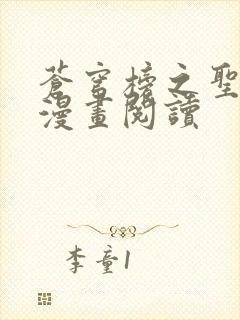 蒼穹榜之聖
漫畫閱讀
李童1